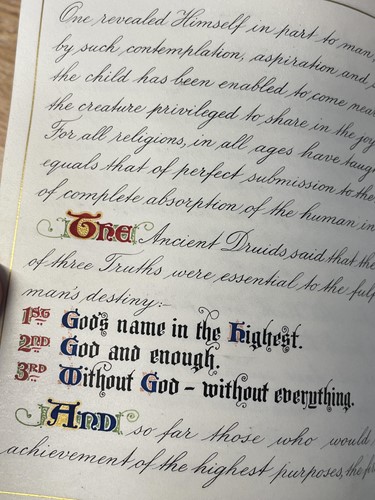 One revealed Himself in part to man,
by such contemplation, aspiration, and
the child has been enabled to come near
the creature privileged to share in the joy
For all religions, in all ages have taug
equals that of perfect submission to the
of complete absorption of the human in
The Ancient Druids said that the
of three Truths were essential to the ful
man's destiny:-
1ST God's name in the Highest.
2ND God and enough.
3RD Without God - without everything.
And so far those who would
achievement of the highest purposes, the